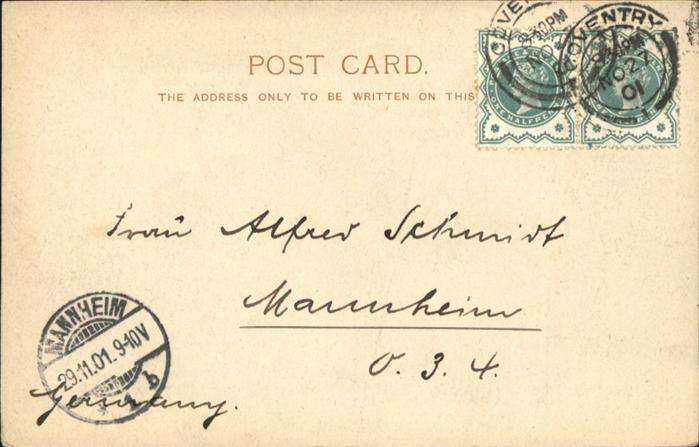 POST CARD.
THE ADDRESS ONLY TO BE WRITTEN ON THIS
COVENTRY
NO 2
01
ONE HALFPE
Frau Alfred Schmidt
Mannheim
O. 3. 4.
MANNHEIM
29.11.01. 9-10V
Germany.